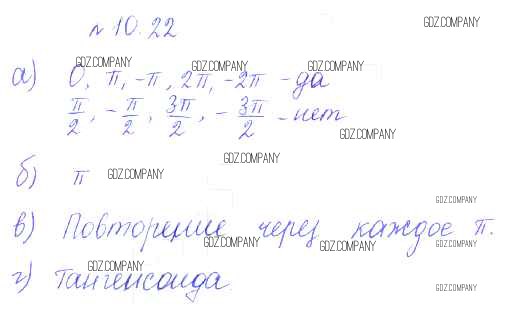 № 10.22
GDZ.COMPANY
GDZ.COMPANY GDZ.COMPANY GDZ.COMPANY
а) 0, π, -π, 2π, -2π - да
π/2, -π/2, 3π/2, -3π/2 - нет
GDZ.COMPANY
GDZ.COMPANY
б) π GDZ.COMPANY
GDZ.COMPANY
в) Повторение через каждое π.
GDZ.COMPANY GDZ.COMPANY GDZ.COMPANY
GDZ.COMPANY
г) Тангенсоида.
GDZ.COMPANY